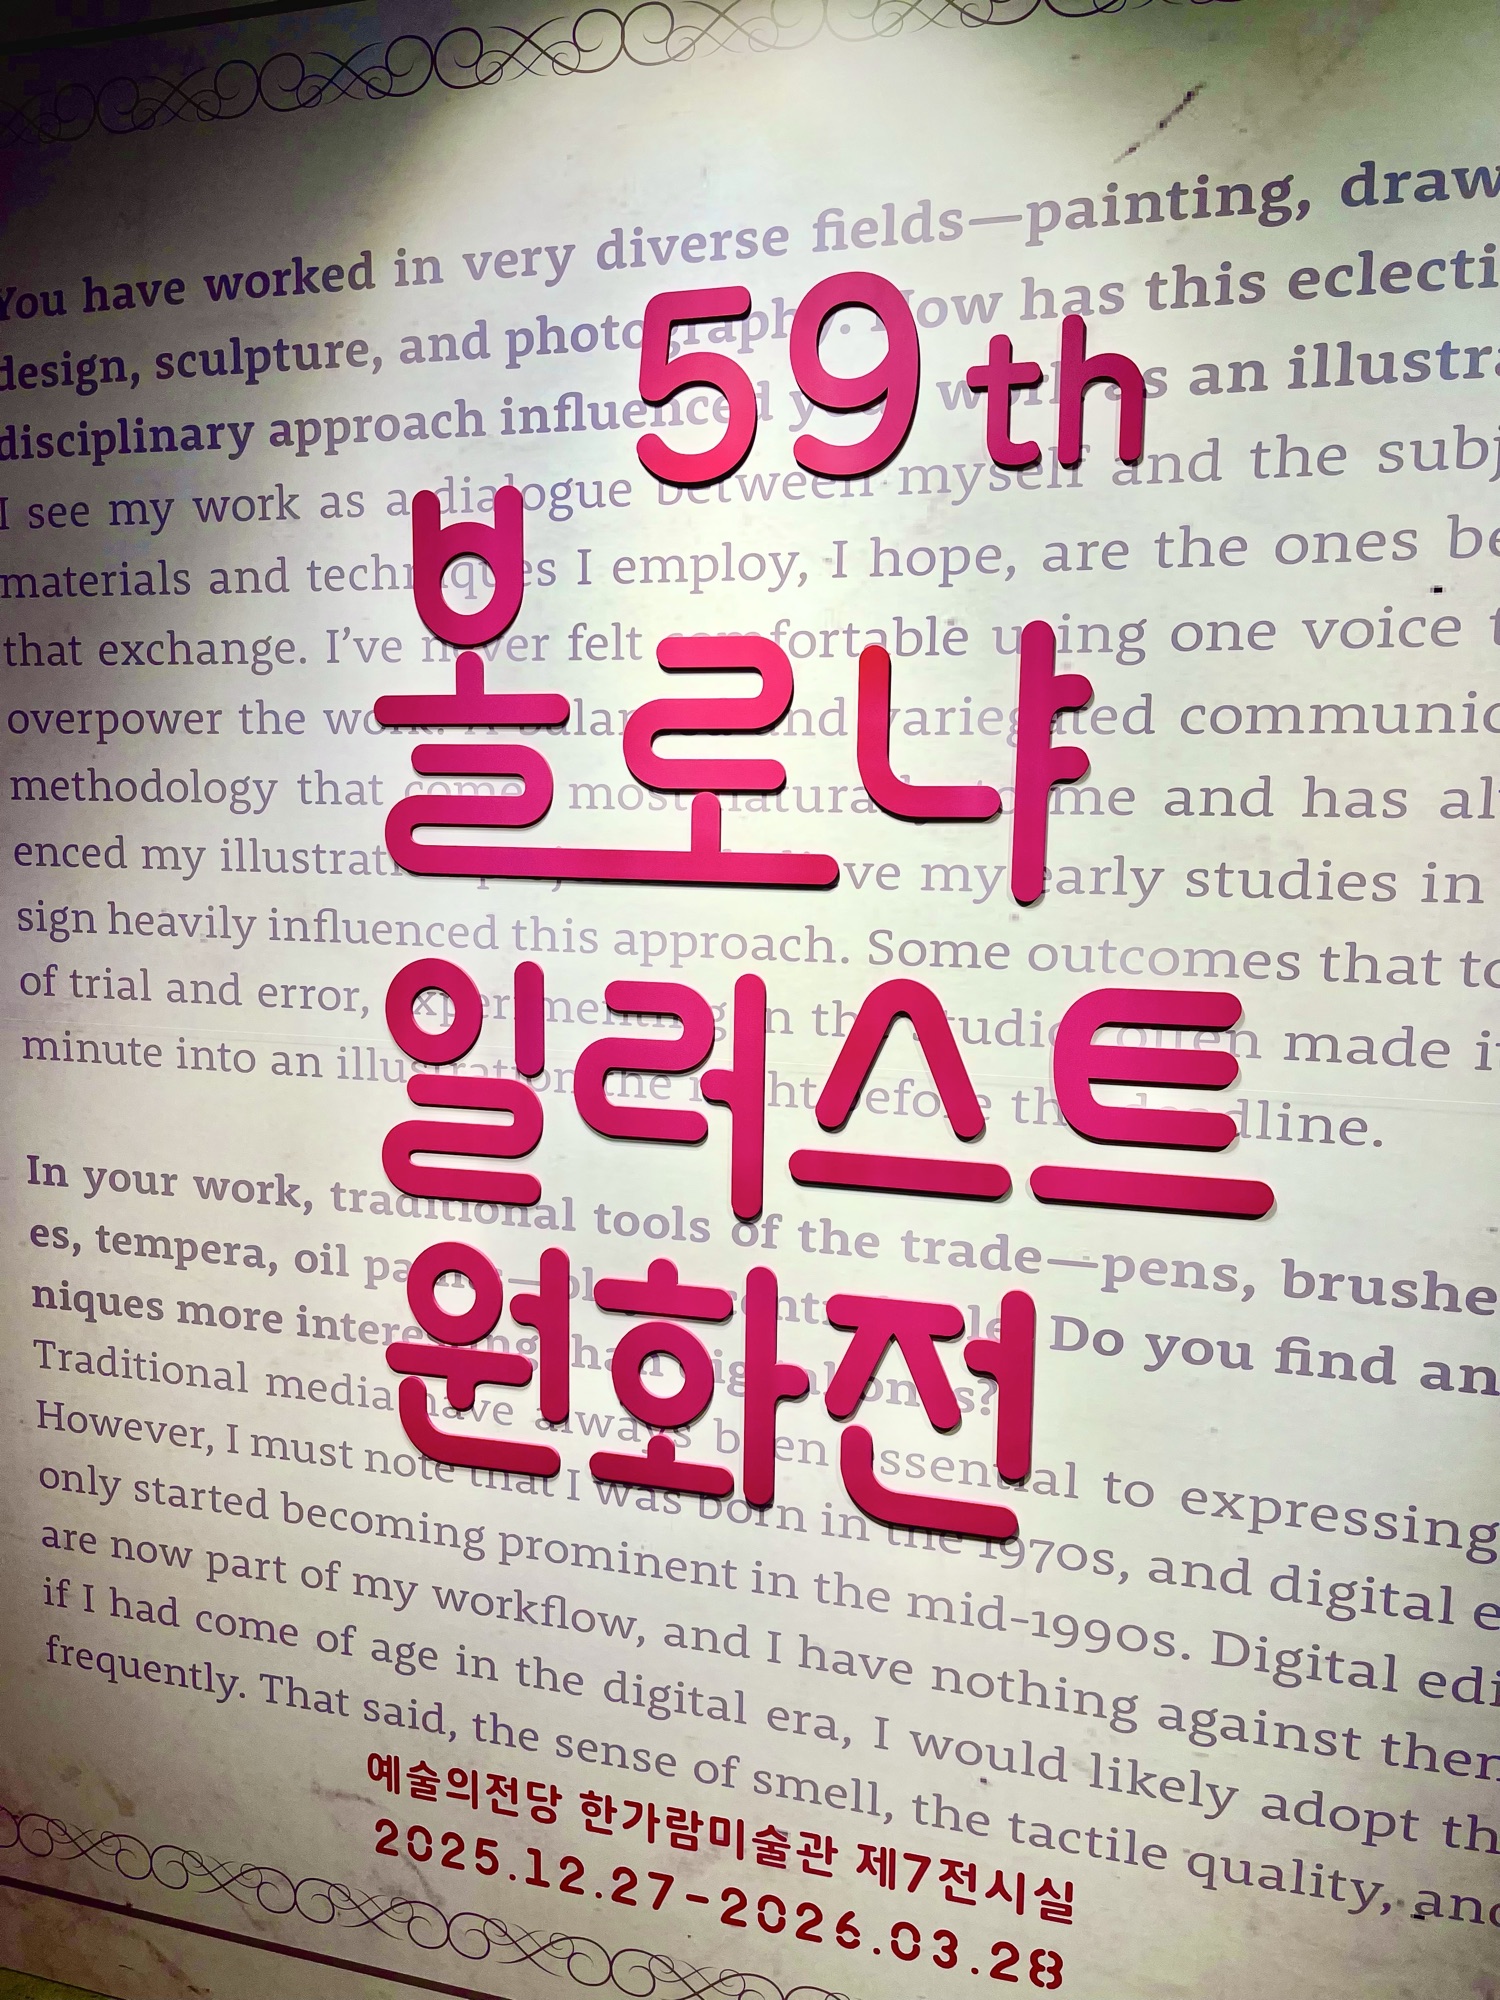 You have worked in very diverse fields—painting,
design, sculpture, and photography. Now has this
disciplinary approach influenced your work as an
I see my work as a dialogue between myself and the
materials and techniques I employ, I hope, are the ones
that exchange. I've never felt comfortable using one voice
overpower the
methodology that comes most naturally to me and has
enced my illustration my early studies in
sign heavily influenced this approach. Some outcomes that
of trial and error, experimenting in the studio often made
minute into an illustration the night before the deadline.
In your work, traditional tools of the trade—pens,
es, tempera, oil Do you find
niques more interesting than digital ones?
Traditional media have always been essential to expressing
However, I must note that I was born in the 1970s, and digital
only started becoming prominent in the mid-1990s. Digital
are now part of my workflow, and I have nothing against
if I had come of age in the digital era, I would likely adopt
frequently. That said, the sense of smell, the tactile quality,
59th
볼로냐
일러스트
원화전
예술의전당 한가람미술관 제7전시실
2025.12.27-2026.03.28